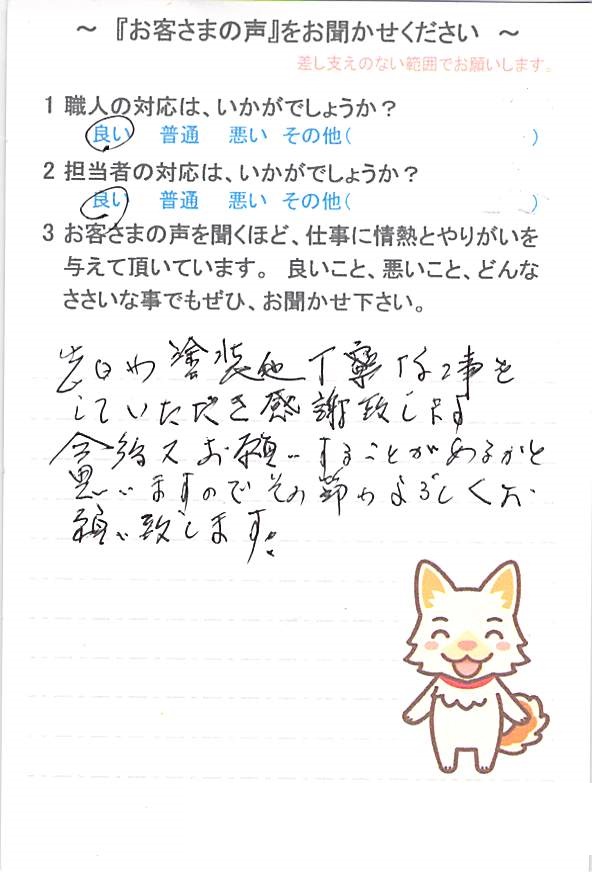 ～ 『お客さまの声』をお聞かせください ～
差し支えのない範囲でお願いします。
1 職人の対応は、いかがでしょうか？
良い 普通 悪い その他( )
2 担当者の対応は、いかがでしょうか？
良い 普通 悪い その他( )
3 お客さまの声を聞くほど、仕事に情熱とやりがいを
与えて頂いています。 良いこと、悪いこと、どんな
ささいな事でもぜひ、お聞かせ下さい。
先日わ塗装他丁寧な工事を
していただき感謝致します
今後又お願いすることがあるかと
思いますのでその節わよろしくお
願い致します。